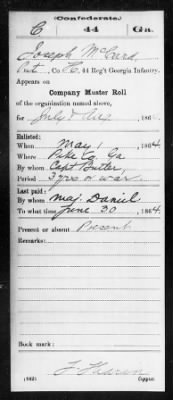 (Confederate.)
C 44 Ga.
Joseph McCard
Pvt., Co. C, 44 Reg't Georgia Infantry.
Appears on
Company Muster Roll
of the organization named above,
for July & Aug, 186
Enlisted:
When May 1, 1864
Where Pike Co. Ga
By whom Capt Butler
Period 3 yrs or war
Last paid:
By whom Maj. Daniel
To what time June 30, 1864.
Present or absent Present
Remarks:
Book mark:
(642) Copyist.